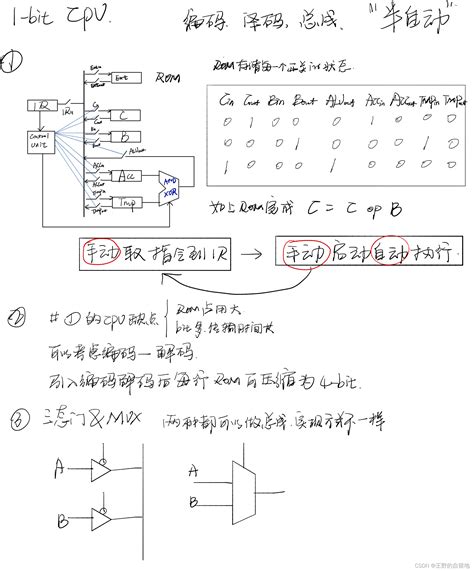 1-bit CPU.
编码, 译码, 总线, "半自动"
①
ROM
ROM 存储每一个开关的状态.
Cin Cout Bin Bout ALUout Accin Accout Tmpin Tmpout
0 1 0 0 0 1 0 0 0
0 0 0 1 0 0 0 1 0
1 0 0 0 1 0 0 0 0
IR
IRin
Control
unit
Ext
C
B
ALUout
Acc
Tmp
AND
XOR
如上ROM完成 C = C op B
手动取指令到IR → 手动启动自动执行.
② #①的CPU缺点
ROM占用大
bit多, 传输时间长
可以考虑编码—解码.
引入编码解码后每行ROM可压缩为4-bit.
③ 三态门&MUX 两种都可以做总线, 实现方式不一样
A
B
A
B
CSDN @王野的自留地